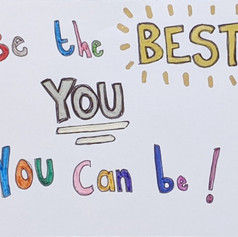 Be the BEST
YOU
You can be!